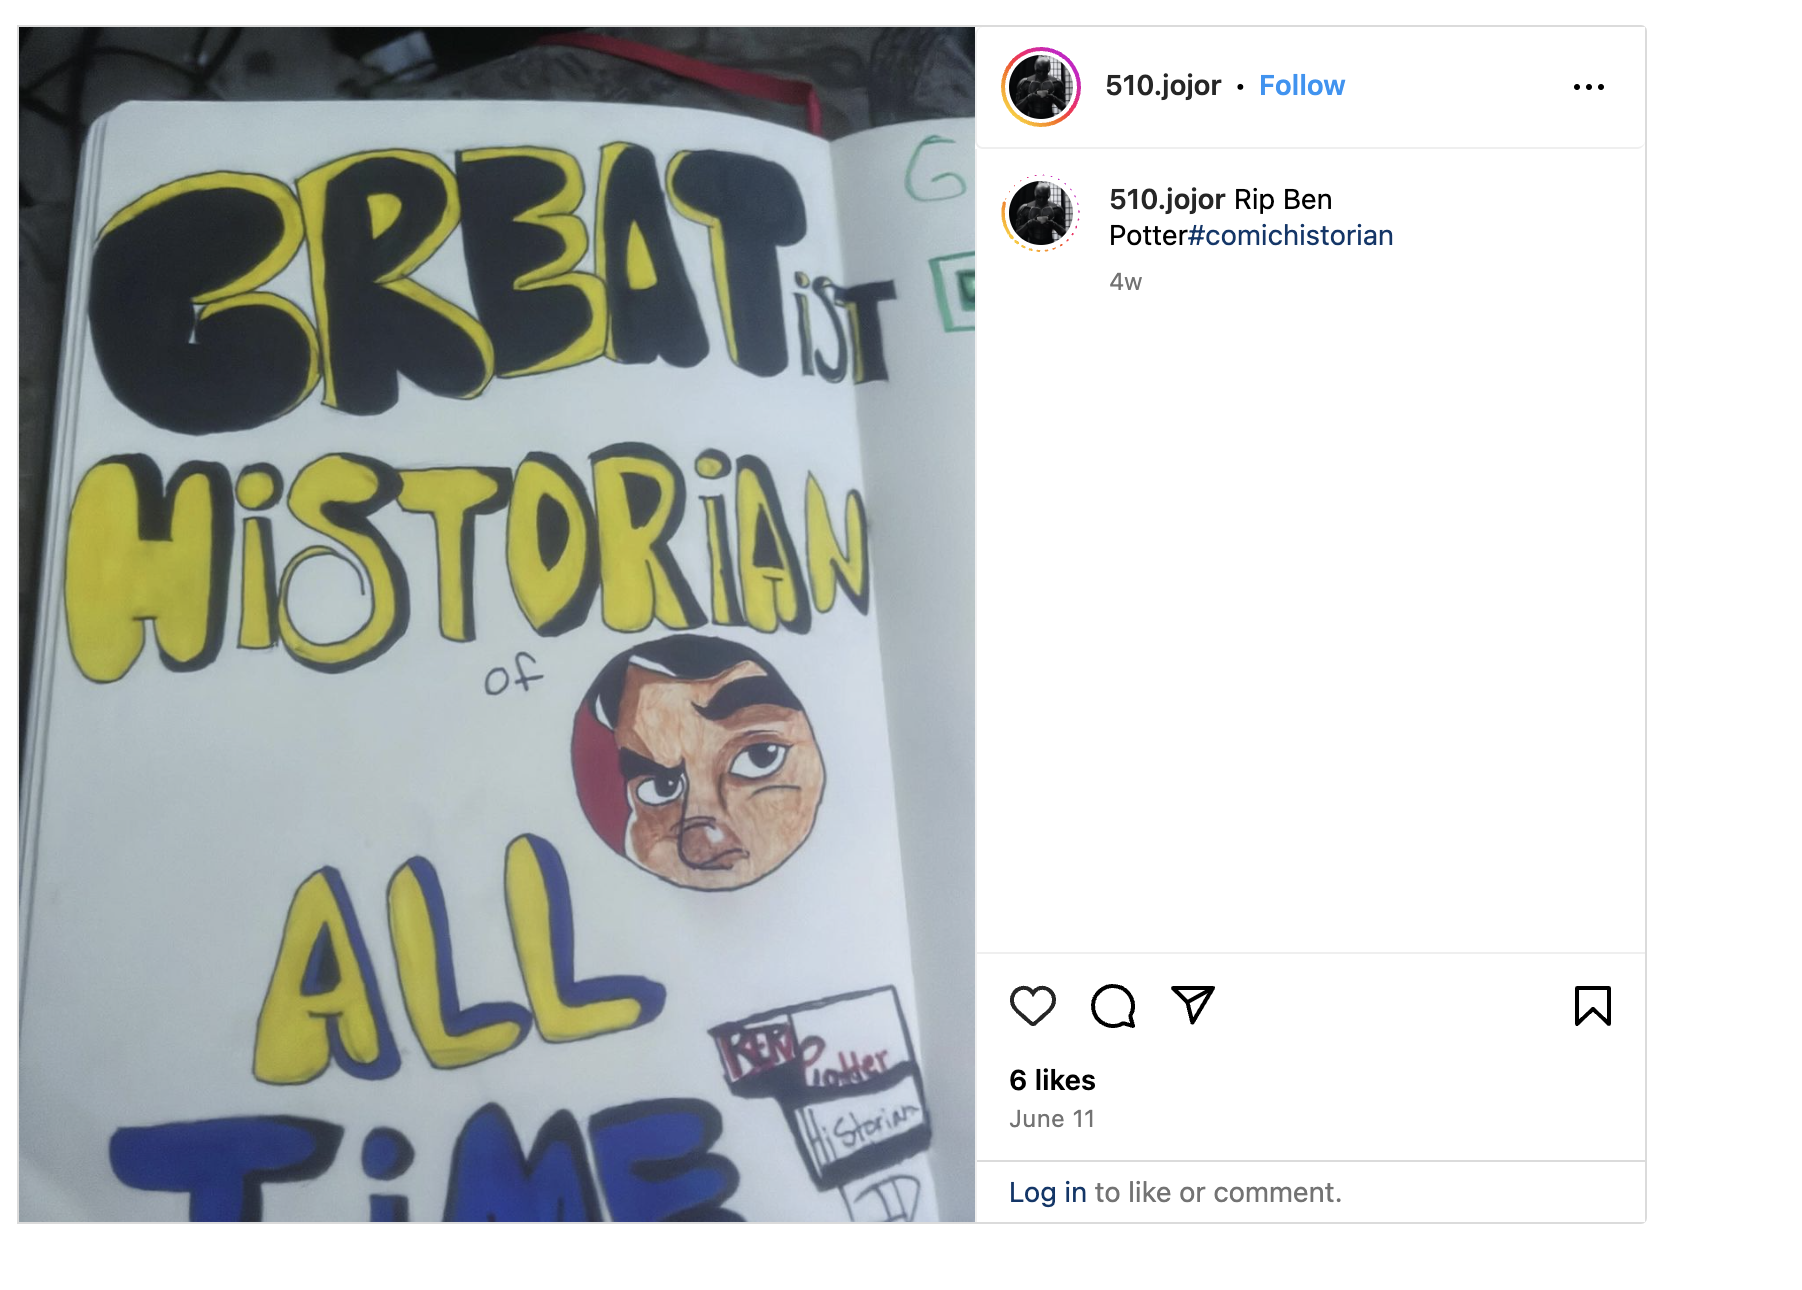 GREATiST
HiSTORiAN
of
ALL
TiME
Historian
G
510.jojor • Follow
510.jojor Rip Ben
Potter#comichistorian
4w
6 likes
June 11
Log in to like or comment.